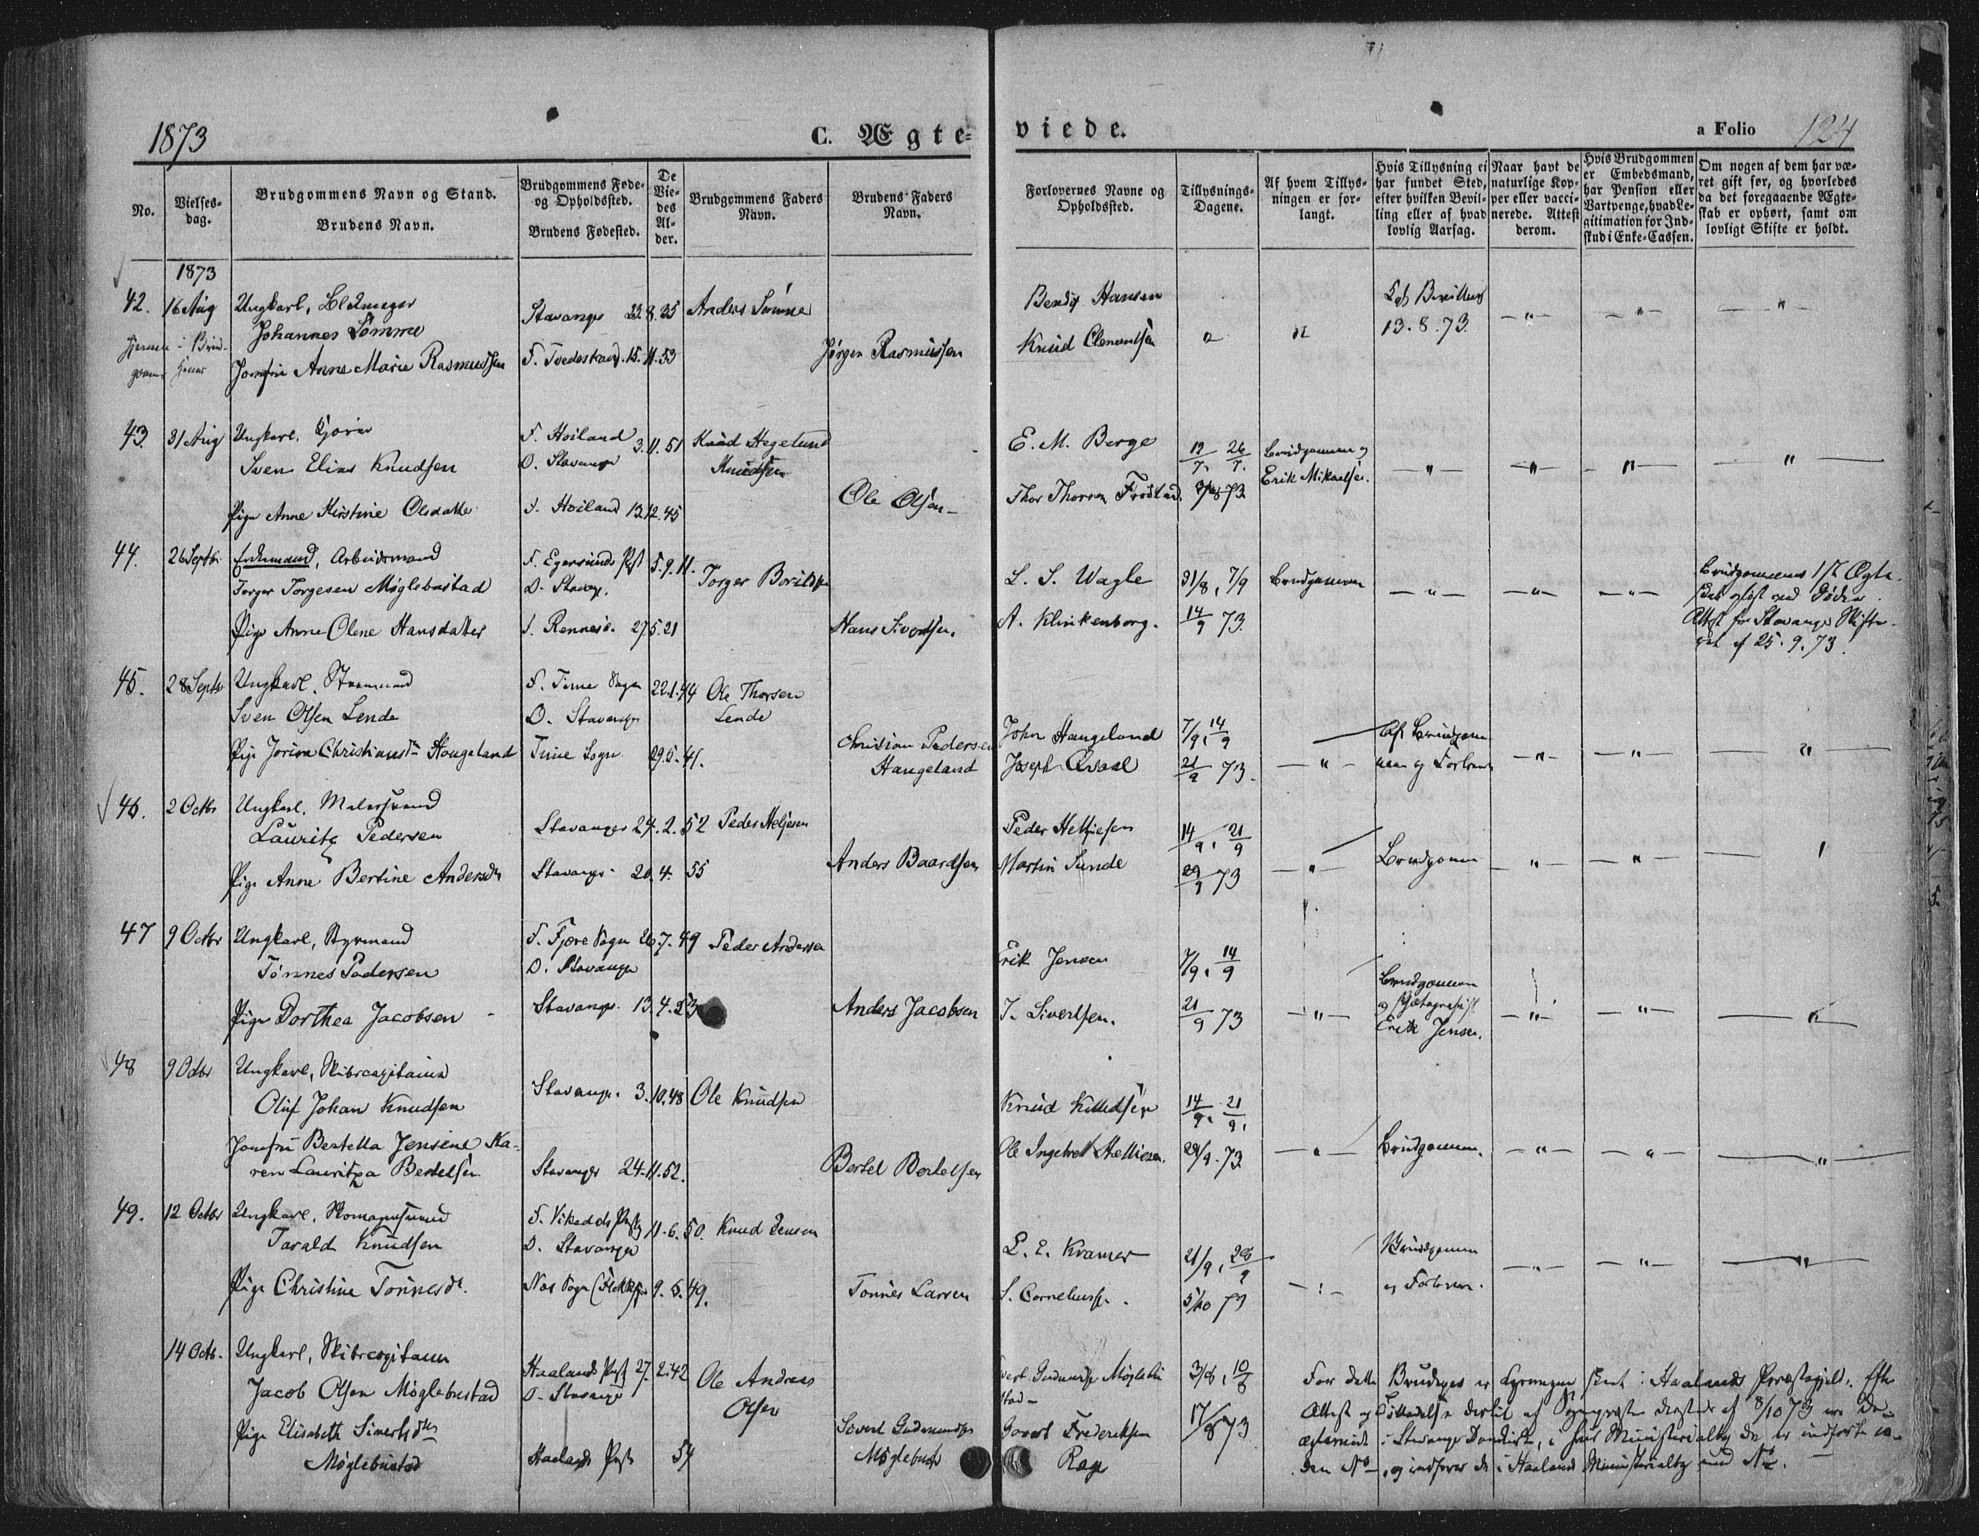 1873
C. Ægteviede.
a Folio 124
No.
Vielsesdag.
Brudgommens Navn og Stand.
Brudens Navn.
Brudgommens Føde- og Opholdssted.
Brudens Fødested.
De Viedes Alder.
Brudgommens Faders Navn.
Brudens Faders Navn.
Forlovernes Navne og Opholdssted.
Tillysnings-Dagene.
Af hvem Tillysningen er forlangt.
Hvis Tillysning ei har fundet Sted, efter hvilken Bevilling eller af hvad lovlig Aarsag.
Naar havt de naturlige Kopper eller vaccinerede. Attest derom.
Hvis Brudgommen er Embedsmand, har Pension eller Vartpenge, hvad Legitimation for Indskud i Enke-Cassen.
Om nogen af dem har været gift før, og hvorledes da det foregaaende Ægteskab er ophørt, samt om lovligt Skifte er holdt.
1873
42. 16 Aug Ungkarl,
Johannes Sømme Stavanger 23.8.35 Anders Sømme
Jomfru Anne Marie Rasmussen F. Tvedestrand 15.11.53 Jørgen Rasmussen
Bendix Hansen
Knud Clementsen
13.8.73.
43. 31 Aug Ungkarl,
Sven Elias Knudsen F. Høiland O. Stavanger 3.11.51 Knud Hegelund Knudsen
Pige Anne Kirstine Olsdatter F. Høiland 13.12.45 Ole Olsen
E. M. Berge
Thor Thorsen Frøstad
Brudgommen og Erik Mikaelsen.
44. 26 Septbr Enkemand, Arbeidsmand
Torger Torgesen Møglebustad F. Egersunds Pgst O. Stavgr. 5.9.11. Torger Borildsen
Pige Anne Olene Hansdatter F. Rennesø. 27.5.21 Hans Sivertsen.
L. S. Wagle 31/8, 7/9 Brudgommen
A. Klinkenborg. 14/9 73.
Brudgommens 1ste Ægteskab opløst ved Døden.
Attest fra Stavanger Skifteret af 25.9.73.
45. 28 Septbr Ungkarl,
Sven Olsen Lende F. Time Sogn O. Stavanger 22.1.44 Ole Thorsen Lende
Pige Jorine Christiansdtr Haugeland Time Sogn 29.5.41. Christian Pedersen Haugeland
John Haugeland 7/9, 14/9
Joseph Qvaal 21/9 73.
Af Brudgommen og Forloveren
46. 2 Octbr Ungkarl, Malersvend
Lauritz Pedersen Stavanger 24.2.52 Peder Heljesen
Pige Anne Bertine Andersdtr Stavanger 20.4.55 Anders Baardsen
Peder Helliesen 14/9, 21/9
Martin Sunde 73
Brudgommen
47 9 Octbr Ungkarl, Styrmand
Tønnes Pedersen F. Fjære Sogn O. Stavanger 26.7.49 Peder Andersen
Pige Dorthea Jacobsen Stavanger 13.4.53 Anders Jacobsen
Erik Jensen 7/9, 14/9
T. Sivertsen. 21/9 73
Brudgommen og Photografist Erik Jensen.
48 9 Octbr Ungkarl, Skibscapitain
Oluf Johan Knudsen Stavanger 3.10.48 Ole Knudsen
Jomfru Bertella Jensine Karen Lauritza Bertelsen Stavanger 24.11.52. Bertel Bertelsen
Knud Kittilsen 14/9, 21/9,
Ole Ingebret Helliesen 73.
Brudgommen.
49. 12 Octbr Ungkarl, Skomagersvend
Tarald Knudsen F. Vikedals Pgst O. Stavanger 11.6.50. Knud Jensen
Pige Christine Tønnesdtr. Næs Sogn (Flekkefj. 9.6.49. Tønnes Larsen
L. E. Kramer 21/9, 28/9
S. Corneliussen. 5/10 73
Brudgommen og Forloveren.
14 Octbr Ungkarl, Skibscapitain
Jacob Olsen Møglebustad Haalands Pgst O. Stavanger 27.2.42 Ole Andreas Olsen
Pige Elisabeth Sivertsdtr Møglebustad Haalands Pgst 54 Sivert Gudmundsen Møglebust
Sivert Gudmundsen Møglebustad 3/8, 10/8
Govert Frederiksen Rage 17/8 73
For dette Brudepar er Lysningen skeet i Haalands Præstegjeld. Efter
Attest og Tilladelse dertil af Sognepræsten dersteds af 8/10 73 ere De
ægteviede i Stavanger Domkirke, i hvis Ministerialbog de er indførte uden No, og indføres de i Haalands Ministerialbog med No.